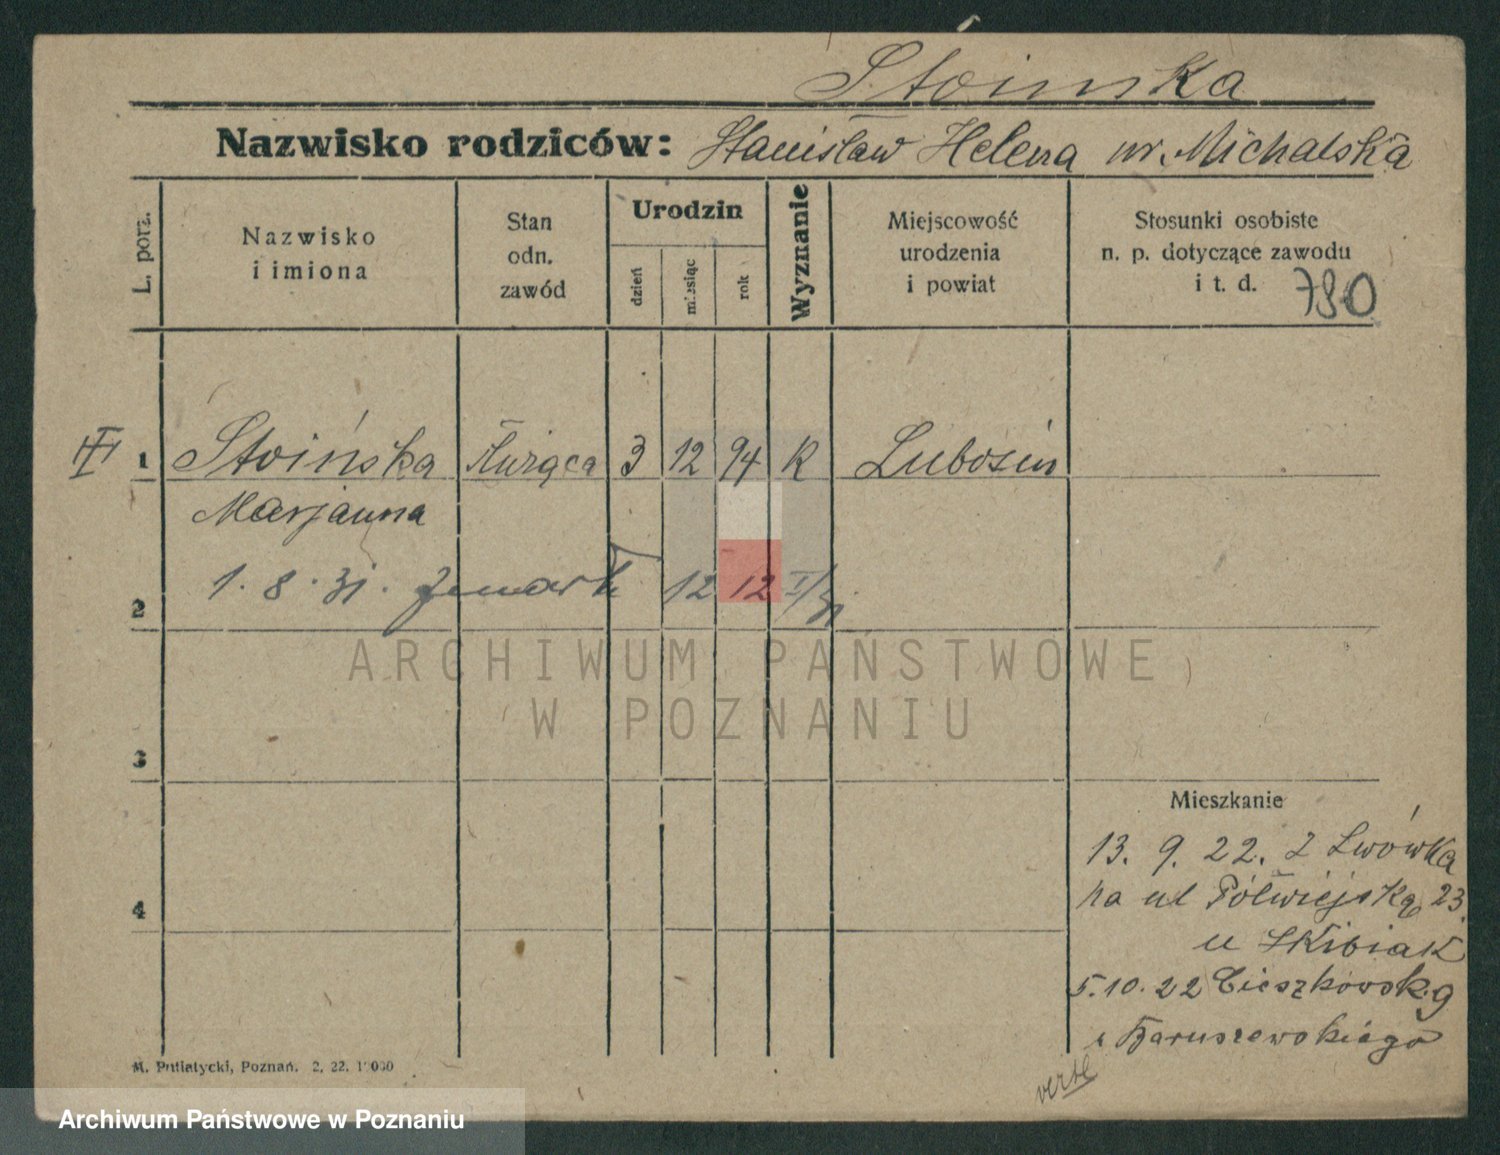 Stoinska
Nazwisko rodziców: Stanisław Helena ur. Michalska
L. porz.
Nazwisko
i imiona
Stan
odn.
zawód
Urodzin
dzień
miesiąc
rok
Wyznanie
Miejscowość
urodzenia
i powiat
Stosunki osobiste
n. p. dotyczące zawodu
i t. d.
790
III 1 Stoińska służąca 3 12 94 K Lubosin
Marjanna
2 1. 8. 31. 12 12 I/31
ARCHIWUM PAŃSTWOWE
W POZNANIU
3
Mieszkanie
13. 9. 22. z Lwówka
4
na ul Półwiejską 23.
u Skibiak
5. 10. 22 Cieszkowsk. 9
Baruszewskiego
verte
M. Putiatycki, Poznań. 2. 22.
Archiwum Państwowe w Poznaniu